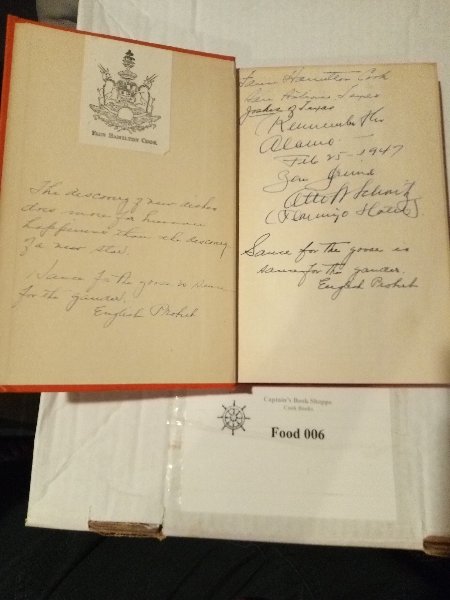 FAIN HAMILTON COOK
The discovery of new dishes
does more for human
happiness than the discovery
of a new star.
Sauce for the goose is sauce
for the gander.
English Prohib
Fain Hamilton Cook
San Antonio Texas
of Texas
Remember the
Alamo
Feb 25-1947
(Flamingo Hotel)
Sauce for the goose is
sauce for the gander.
English Prohib
Captain's Book Shoppe
Cook Books
Food 006